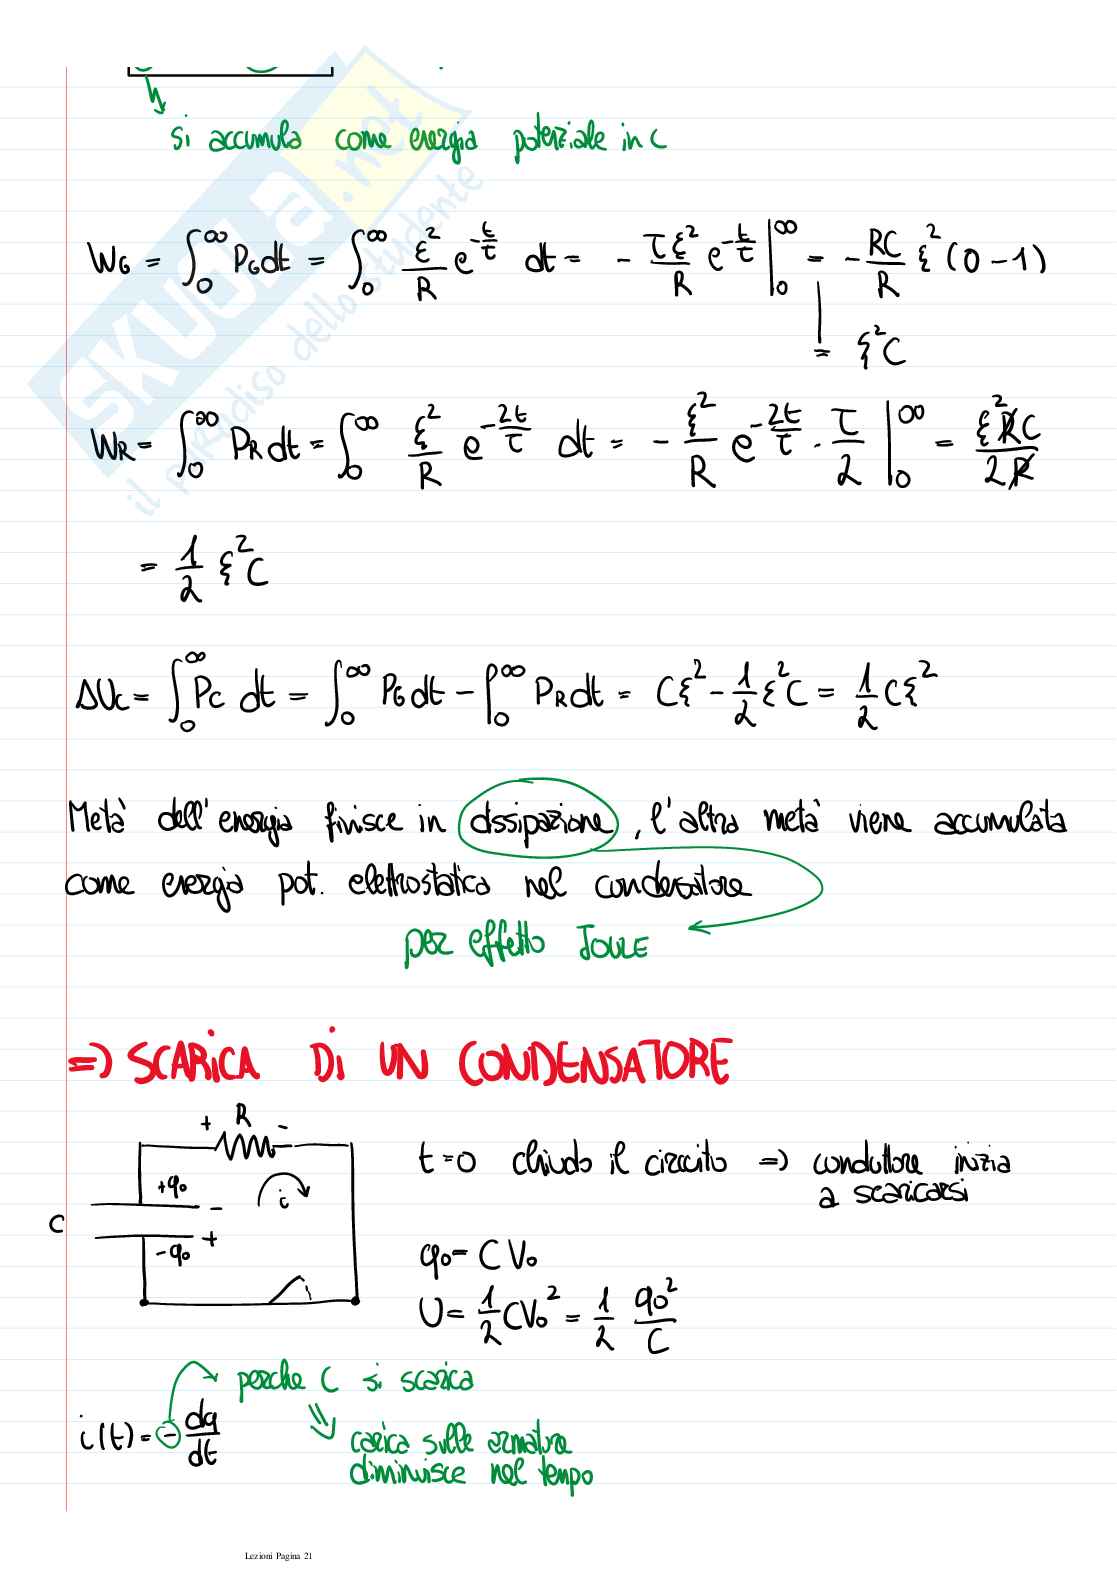 si accumula come energia potenziale in C
W_G = ∫₀^∞ P_G dt = ∫₀^∞ ε²/R e^(-t/τ) dt = - τε²/R e^(-t/τ) |₀^∞ = - RC/R ε² (0-1)
= ε²C
W_R = ∫₀^∞ P_R dt = ∫₀^∞ ε²/R e^(-2t/τ) dt = - ε²/R e^(-2t/τ) · τ/2 |₀^∞ = ε²RC/2R
= 1/2 ε²C
ΔU_C = ∫₀^∞ P_C dt = ∫₀^∞ P_G dt - ∫₀^∞ P_R dt = Cε² - 1/2 ε²C = 1/2 Cε²
Metà dell'energia finisce in dssipazione, l'altra metà viene accumulata
come energia pot. elettrostatica nel condensatore
per effetto JOULE
=> SCARICA DI UN CONDENSATORE
+ R -
+q₀ -
C
-q₀ +
i
t=0 chiudo il circuito => conduttore inizia
a scaricarsi
q₀ = CV₀
U = 1/2 CV₀² = 1/2 q₀²/C
perche C si scarica
i(t) = - dq/dt
carica sulle armature
diminuisce nel tempo
Lezioni Pagina 21
SKUOLA.net
il paradiso dello studente